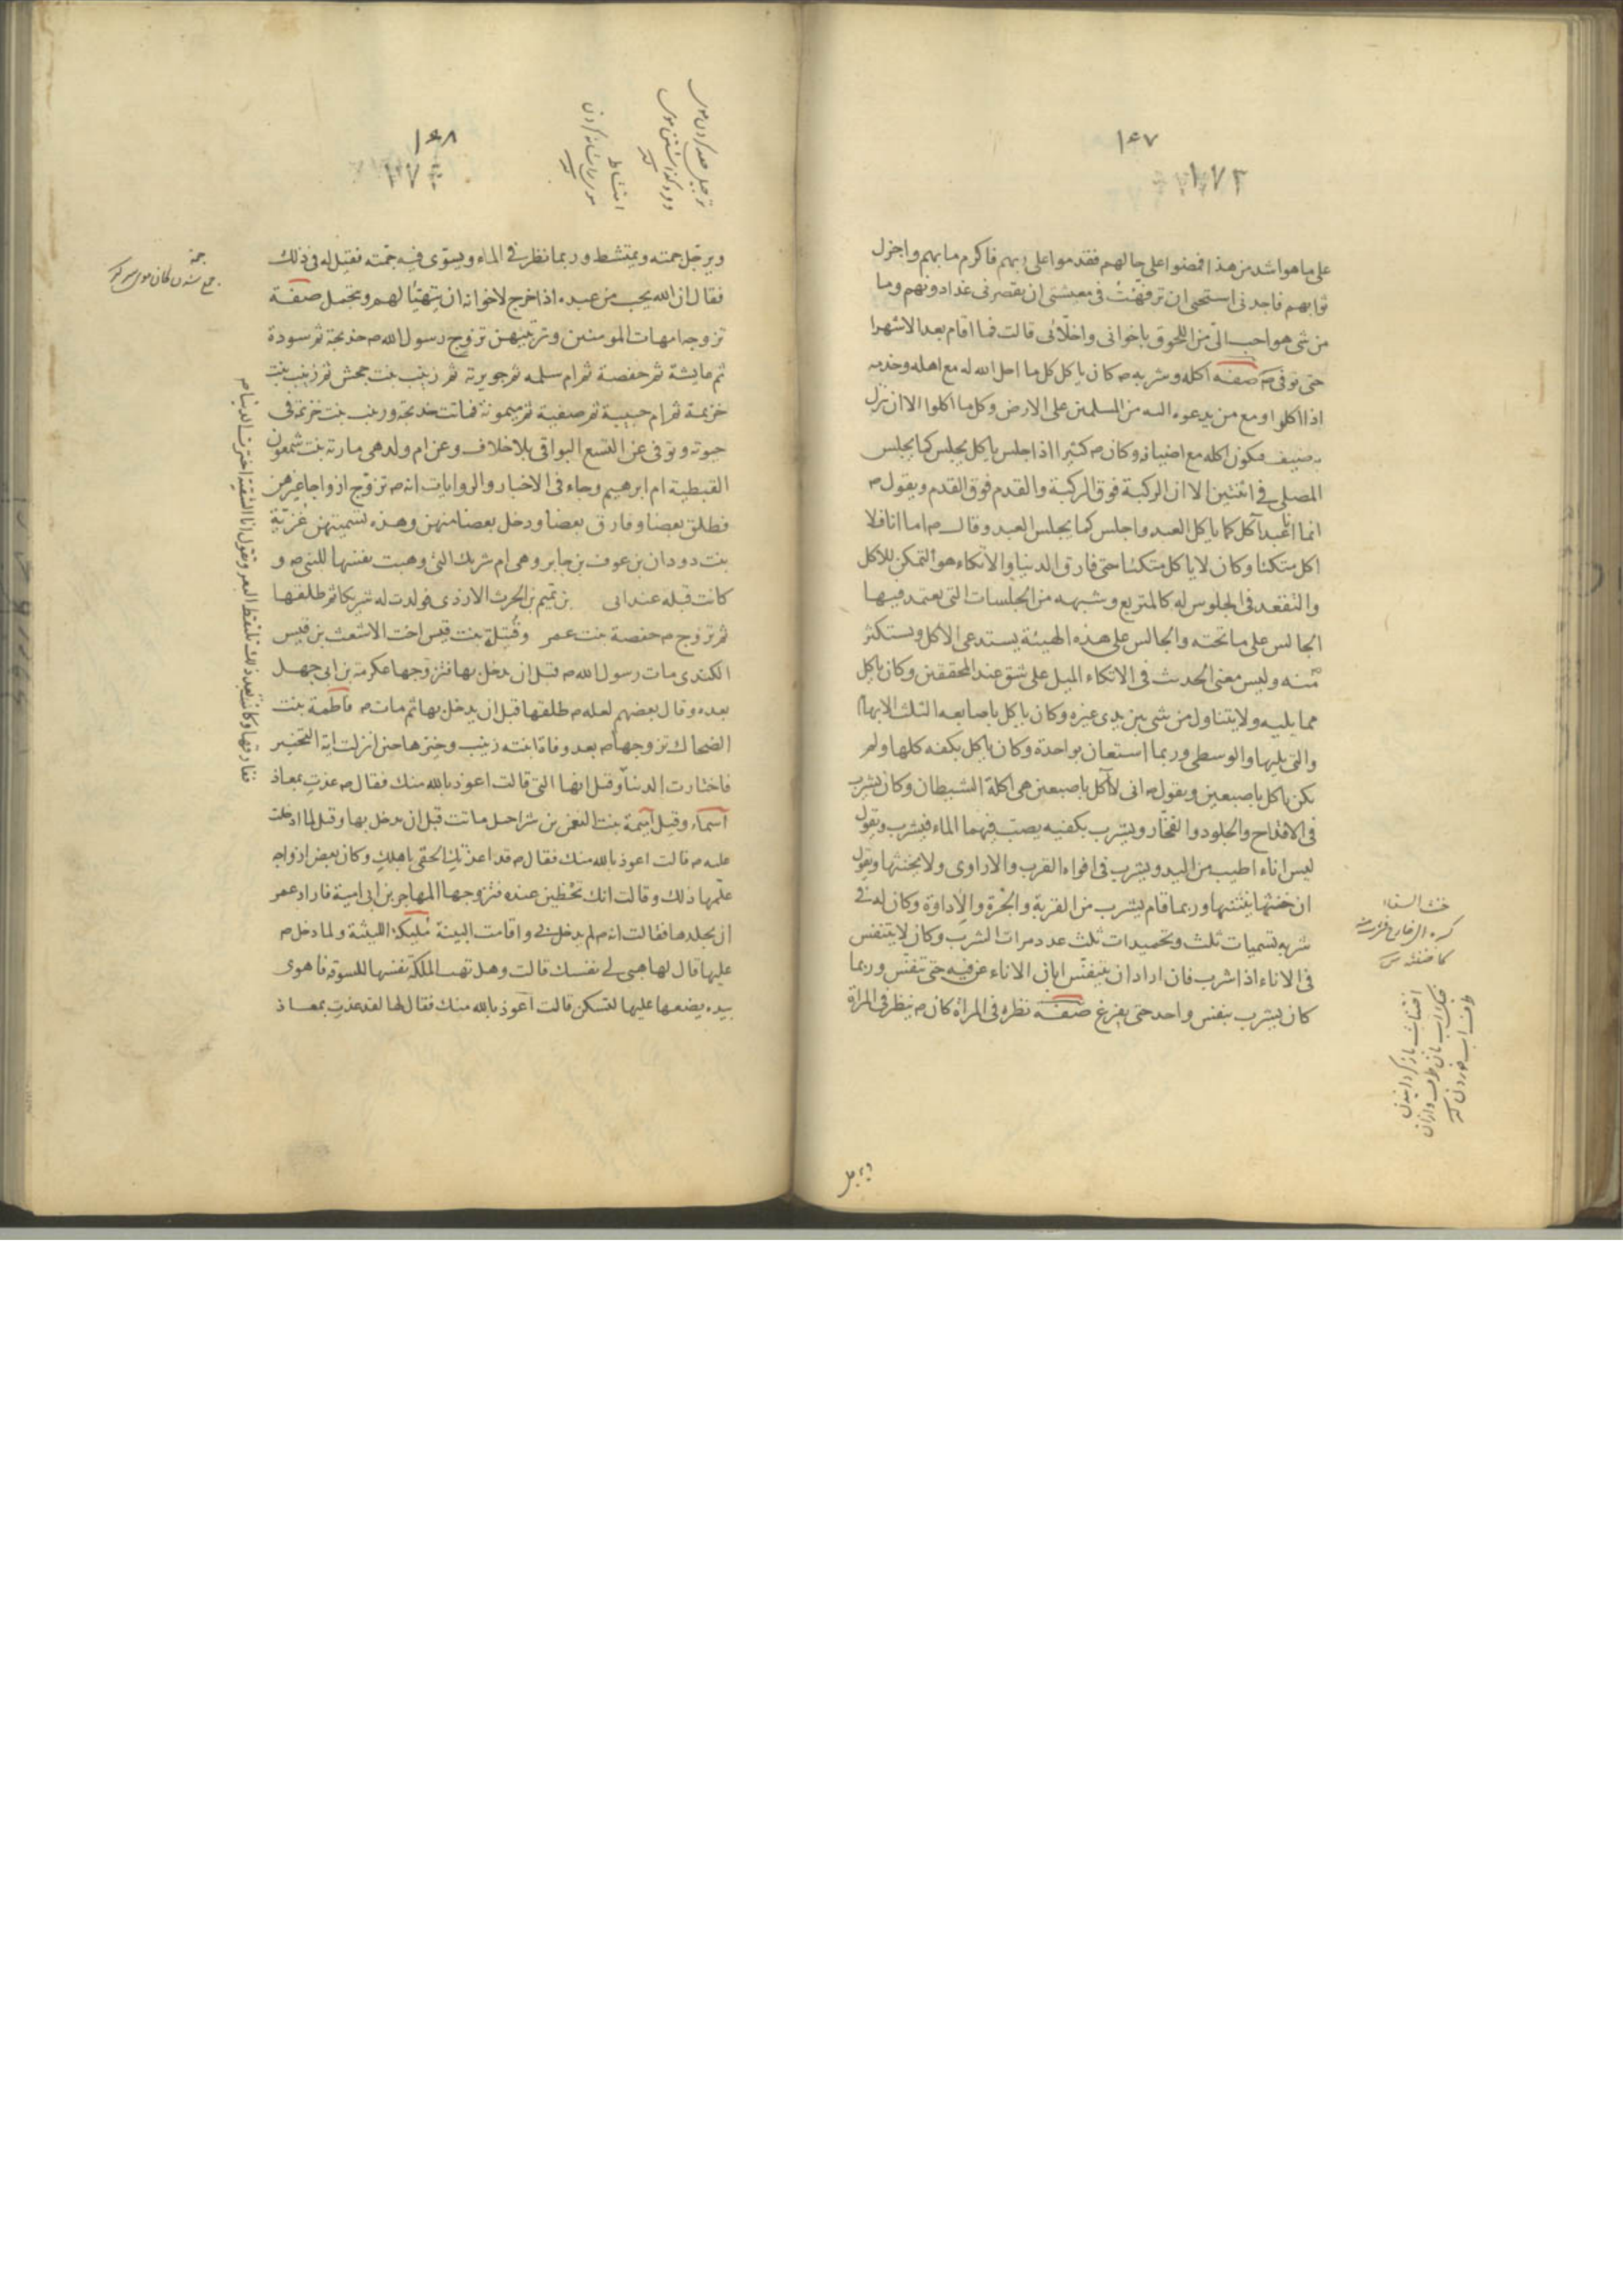 ١٦٧
١٧٣
على ما هو اشد من هذا فمضوا على حالهم فقدموا على ربهم فاكرم مابهم واجزل
ثوابهم فاجدنى استحيى ان ترفهت فى معيشتى ان يقصر نى غدا دونهم وما
من شى هو احب الىّ من اللحوق باخوانى واخلائى قالت فما اقام بعد الا شهرا
حتى توفى ص صفة اكله وشربه ص كان ياكل كل ما احل الله له مع اهله وخدمه
اذا اكلوا ومع من يدعوه اليه من المسلمين على الارض وكل ما اكلوا الا ان ينزل
به ضيف فيكون اكله مع اضيافه وكان ص كثيرا اذا جلس ياكل يجلس كما يجلس
المصلى فى اثنتين الا ان الركبة فوق الركبة والقدم فوق القدم ويقول ص
انما انا عبد آكل كما ياكل العبد واجلس كما يجلس العبد وقال ص اما انا فلا
اكل متكئا وكان لا ياكل متكئا حتى فارق الدنيا والاتكاء هو التمكن للاكل
والتقعد فى الجلوس له كالمتربع وشبهه من الجلسات التى يعتمد فيها
الجالس على ما تحته والجالس على هذه الهيئة يستدعى الاكل ويستكثر
منه وليس معنى الحديث فى الاتكاء الميل على شق عند المحققين وكان ياكل
مما يليه ولا يتناول من شى بين يدى غيره وكان ياكل باصابعه الثلث الابهام
والتى يليها والوسطى وربما استعان بواحدة وكان ياكل بكفه كلها ولم
يكن ياكل باصبعين ويقول ص انى لا آكل باصبعين هى اكلة الشيطان وكان يشرب
فى الاقداح والجلود والفخار ويشرب بكفيه يصبّ فيهما الماء فيشرب ويقول
ليس اناء اطيب من اليد ويشرب فى افواه القرب والاداوى ولا يخنثها ويقول
ان خنثها ينتنها وربما قام يشرب من القربة والجرة والاداوة وكان له فى
شربه تسميات ثلث وتحميدات ثلث عدد مرات الشرب وكان لا يتنفس
فى الاناء اذا شرب فان اراد ان يتنفّس ابان الاناء عن فيه حتى تنفّس وربما
كان يشرب بنفس واحد حتى يفرغ صفة نظره فى المرأة كان ص ينظر فى المرأة
ويرجل
١٦٨
ويرجّل جمته ويمتشط وربما نظر فى الماء ويسوّى فيه جمّته فقيل له فى ذلك
فقال ان الله يحب من عبده اذا خرج لاخوانه ان يتهيّأ لهم ويتجمل صفة
تزوجه امهات المومنين وترتيبهن تزوج رسول الله ص خديجة ثم سودة
ثم عايشة ثم حفصة ثم ام سلمه ثم جويرية ثم زينب بنت جحش ثم زينب بنت
خزيمة ثم ام حبيبة ثم صفية ثم ميمونة فماتت خديجة وزينب بنت خزيمة فى
حيوته وتوفى عن التسع البواقى بلا خلاف وعن ام ولد هى مارية بنت شمعون
القبطية ام ابرهيم وجاء فى الاخبار والروايات انه ص تزوّج ازواجا غيرهن
فطلق بعضا وفارق بعضا ودخل بعضا منهن وهذه تسميتهن غُزيّة
بنت دودان بن عوف بن جابر وهى ام شريك التى وهبت نفسها للنبى ص و
كانت قبله عند ابى بن تميم بن الحرث الازدى فولدت له شريكا ثم طلقها
ثم تزوج ص حفصة بنت عمر وقُتيلة بنت قيس اخت الاشعث بن قيس
الكندى مات رسول الله ص قبل ان يدخل بها فتزوجها عكرمة بن ابى جهل
بعده وقال بعضهم لعله ص طلقها قبل ان يدخل بها ثم مات ص فاطمة بنت
الضحاك تزوجها ص بعد وفاة ابنته زينب وخيّرها حين انزلت اية التخيير
فاختارت الدنيا وقيل انها التى قالت اعوذ بالله منك فقال ص عذت بمعاذ
اسماء وقيل آميمة بنت النعمن بن شراحيل ماتت قبل ان يدخل بها وقيل لما ادخلت
عليه ص قالت اعوذ بالله منك فقال ص قد اعذتك الحقى باهلك وكان بعض ازواجه
علّمها ذلك وقالت انك تحظين عنده فتزوجها المهاجر بن ابى امية فاراد عمر
ان يجلدها فقالت انه ص لم يدخل بى واقامت البينة مُليكة الليثية ولما دخل ص
عليها قال لها هبى لى نفسك قالت وهل تهب الملكة نفسها للسوقة فاهوى
بيده يضعها عليها لتسكن قالت اعوذ بالله منك فقال لها لقد عذت بمعاذ
ففارقها وكانت بعد ذلك تلتقط البعر وتقول انا الشقية اخترت الدنيا ص
جمة
امتشاط